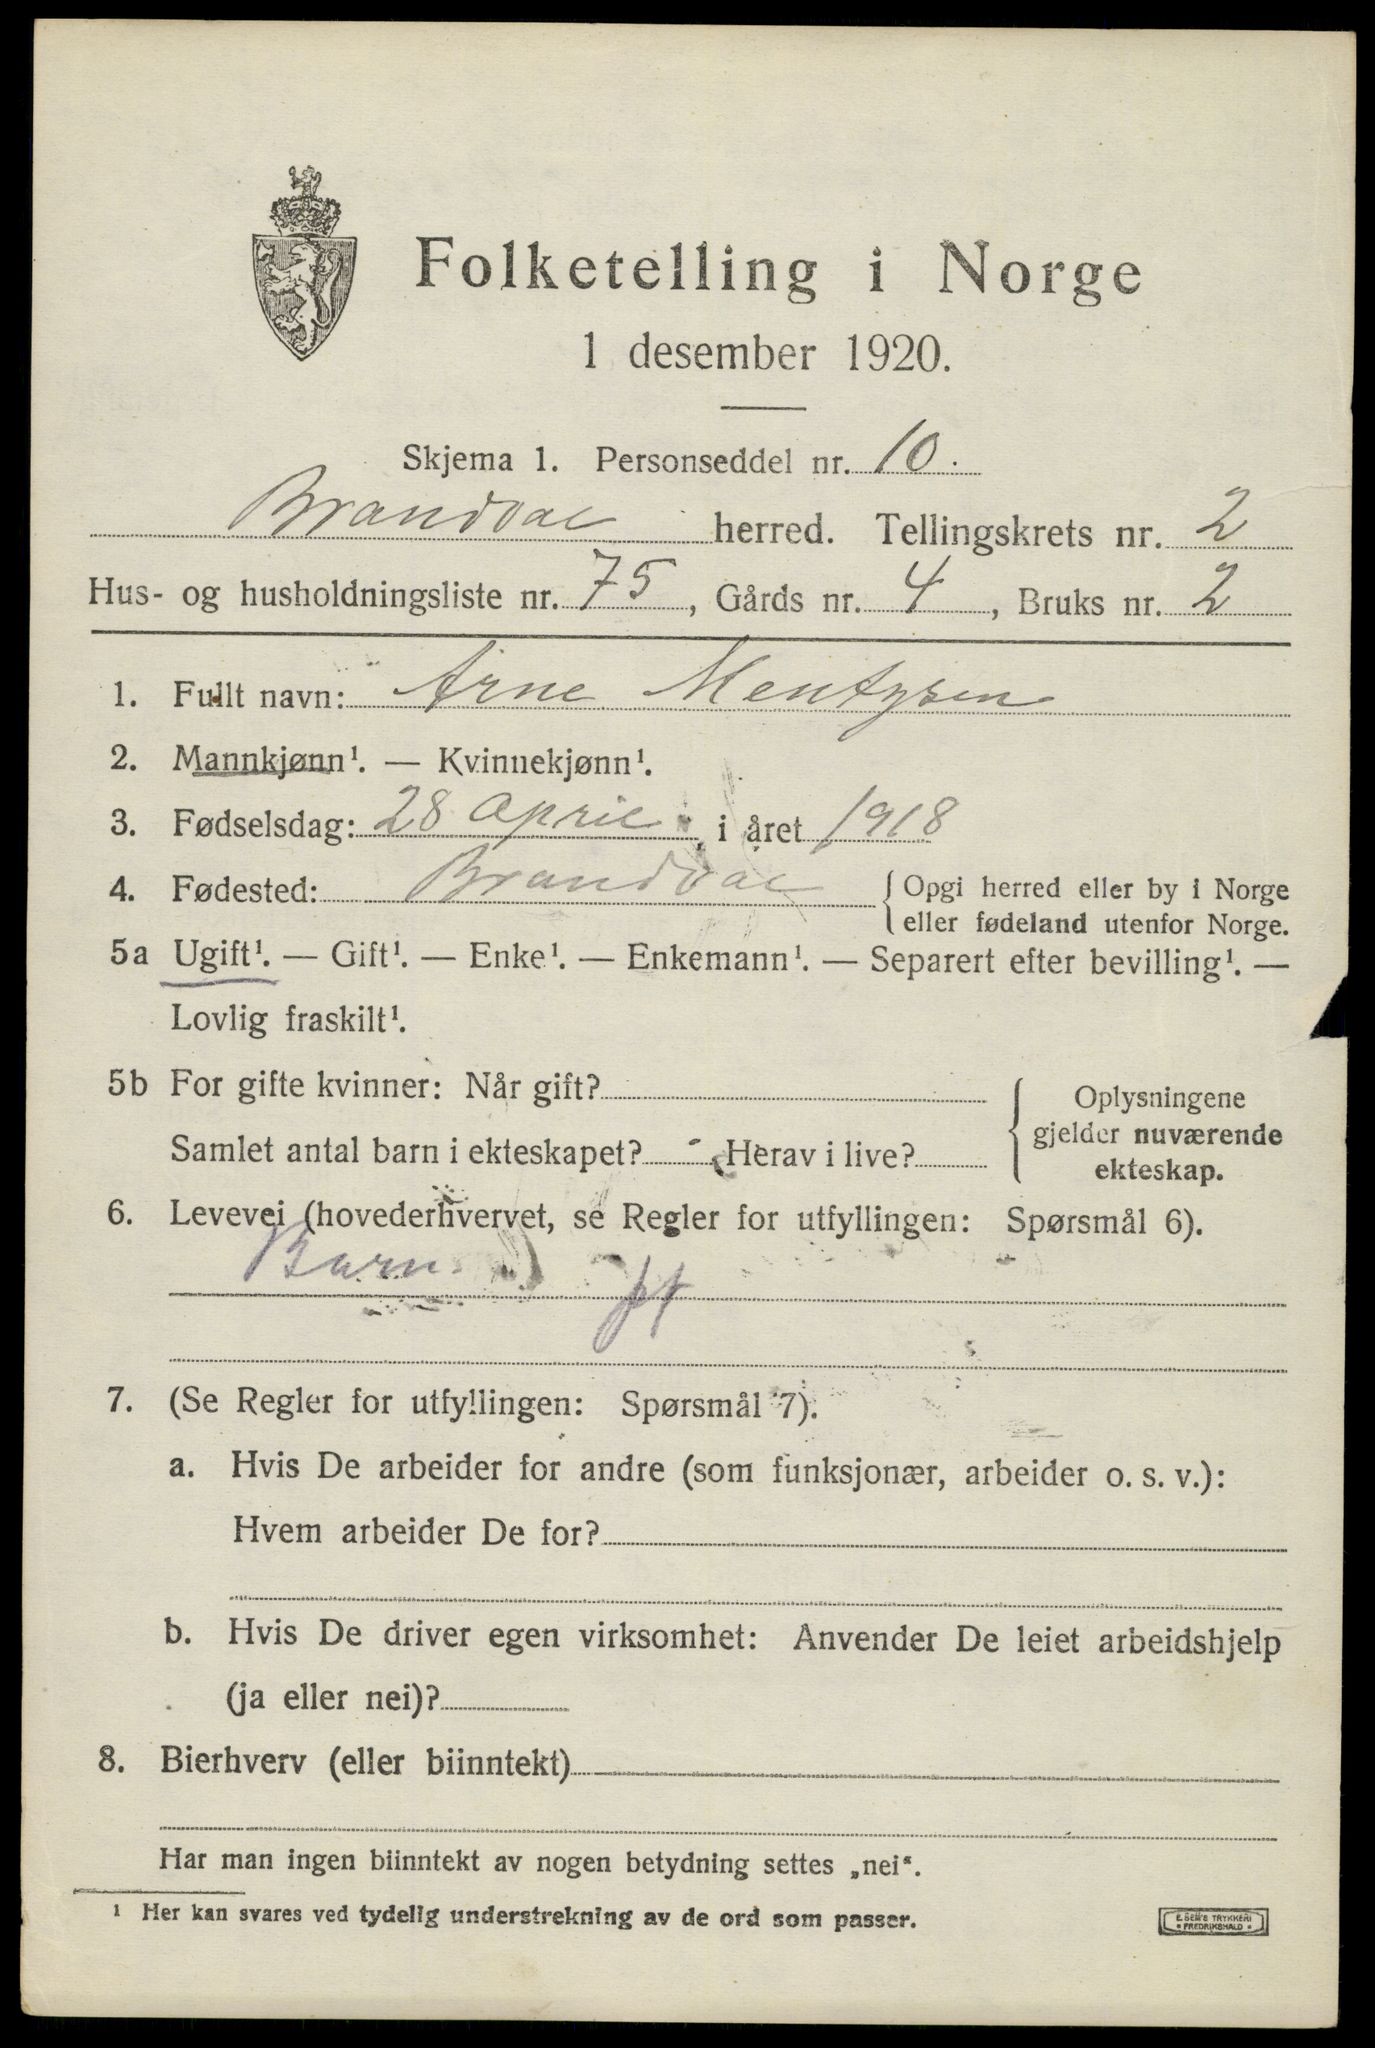 Folketelling i Norge
1 desember 1920.
Skjema 1. Personseddel nr. 10.
Brandval herred. Tellingskrets nr. 2
Hus- og husholdningsliste nr. 75, Gårds nr. 4, Bruks nr. 2
1. Fullt navn: Arne Mentzsen
2. Mannkjønn¹. — Kvinnekjønn¹.
3. Fødselsdag: 28 April, i året 1918
4. Fødested: Brandval {Opgi herred eller by i Norge
eller fødeland utenfor Norge.
5a Ugift¹. — Gift¹. — Enke¹. — Enkemann¹. — Separert efter bevilling¹. —
Lovlig fraskilt¹.
5b For gifte kvinner: Når gift?
Samlet antal barn i ekteskapet? Herav i live?
Oplysningene
gjelder nuværende
ekteskap.
6. Levevei (hovederhvervet, se Regler for utfyllingen: Spørsmål 6).
Barn
7. (Se Regler for utfyllingen: Spørsmål 7).
a. Hvis De arbeider for andre (som funksjonær, arbeider o. s. v.):
Hvem arbeider De for?
b. Hvis De driver egen virksomhet: Anvender De leiet arbeidshjelp
(ja eller nei)?
8. Bierhverv (eller biinntekt)
Har man ingen biinntekt av nogen betydning settes „nei“.
¹ Her kan svares ved tydelig understrekning av de ord som passer.
E. SEM'S TRYKKERI
• FREDRIKSHALD •